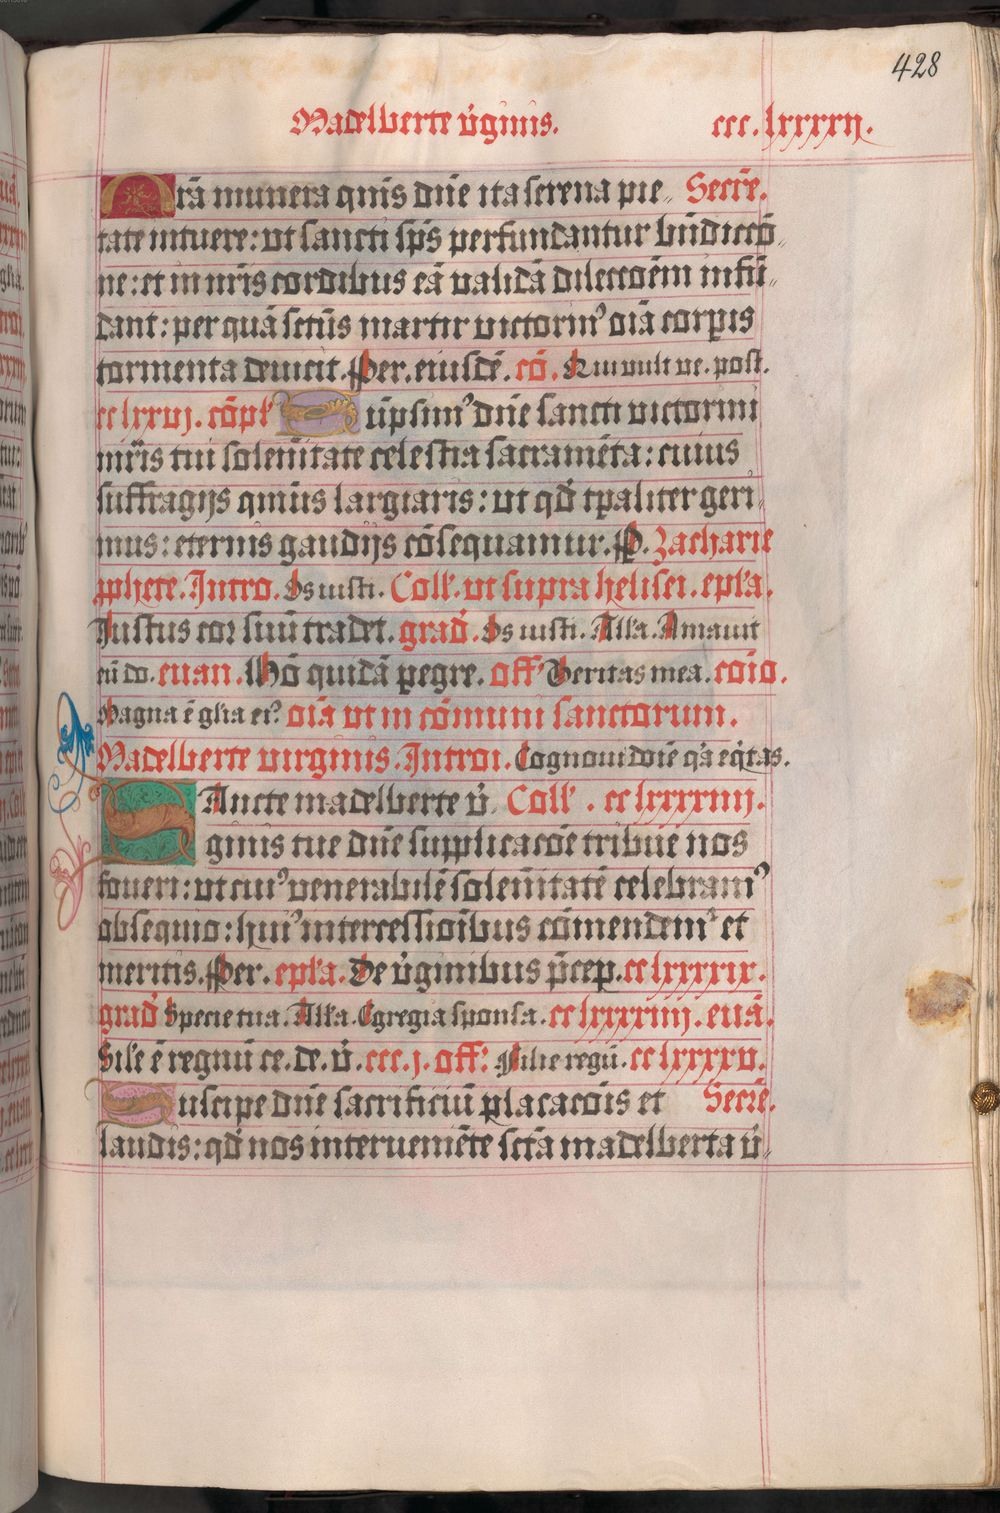 428
Madelberte v̄ginis. ccc.lxxxxij.
Nr̄ā munera qm̄s dn̄e ita serena pie⸗ Secre͞.
tate intuere: ut sancti sp̄s perfundantur bn̄diccō⸗
ne: et in nr̄is cordibus eā validā dileccōem infū⸗
dant: per quā sctūs martir victorinꝰ oīa corp̄is
tormenta devicit. Per. eiusdē. cō. Qui vult ve. post.
cc lxxvj. cōpl' Sūpsimꝰ dn̄e sancti victorini
mr̄is tui solen̄itate celestia sacramēta: cuius
suffragijs qm̄is largiaris: ut qd̄ tp̄aliter geri⸗
mus: eternis gaudijs cōsequamur. P. Zacharie
ꝓphete. Intro. Os iusti. Coll'. ut supra helisei. epl'a.
Iustus cor suū tradet. grad̄. Os iusti. Alla. Amavit
eū do. euan. Hō quidā ꝑegre. off' Veritas mea. cōio.
Magna ē gl'ia eiꝰ oīa ut in cōmuni sanctorum.
Madelberte virginis. Introi. Cognovi dn̄e q̄a eq̄tas.
SAncte madelberte v̄ Coll'. cc lxxxxiiij.
ginis tue dn̄e supplicacōe tribue nos
foveri: ut cuiꝰ venerabilē solen̄itatē celebramꝰ
obsequio: huiꝰ intercessiōibus cōmendemꝰ et
meritis. Per. epl'a. De v̄ginibus p̄cep. cc lxxxxix.
grad̄ Specie tua. Alla. Egregia sponsa. cc lxxxxiiij. euā.
Sil'e ē regnū ce. de. v̄. ccc.j. off: Filie regū. cc lxxxxv.
Suscipe dn̄e sacrificiū placacōis et Secre͞.
laudis: qd̄ nos interveniēte sctā madelberta v̄⸗